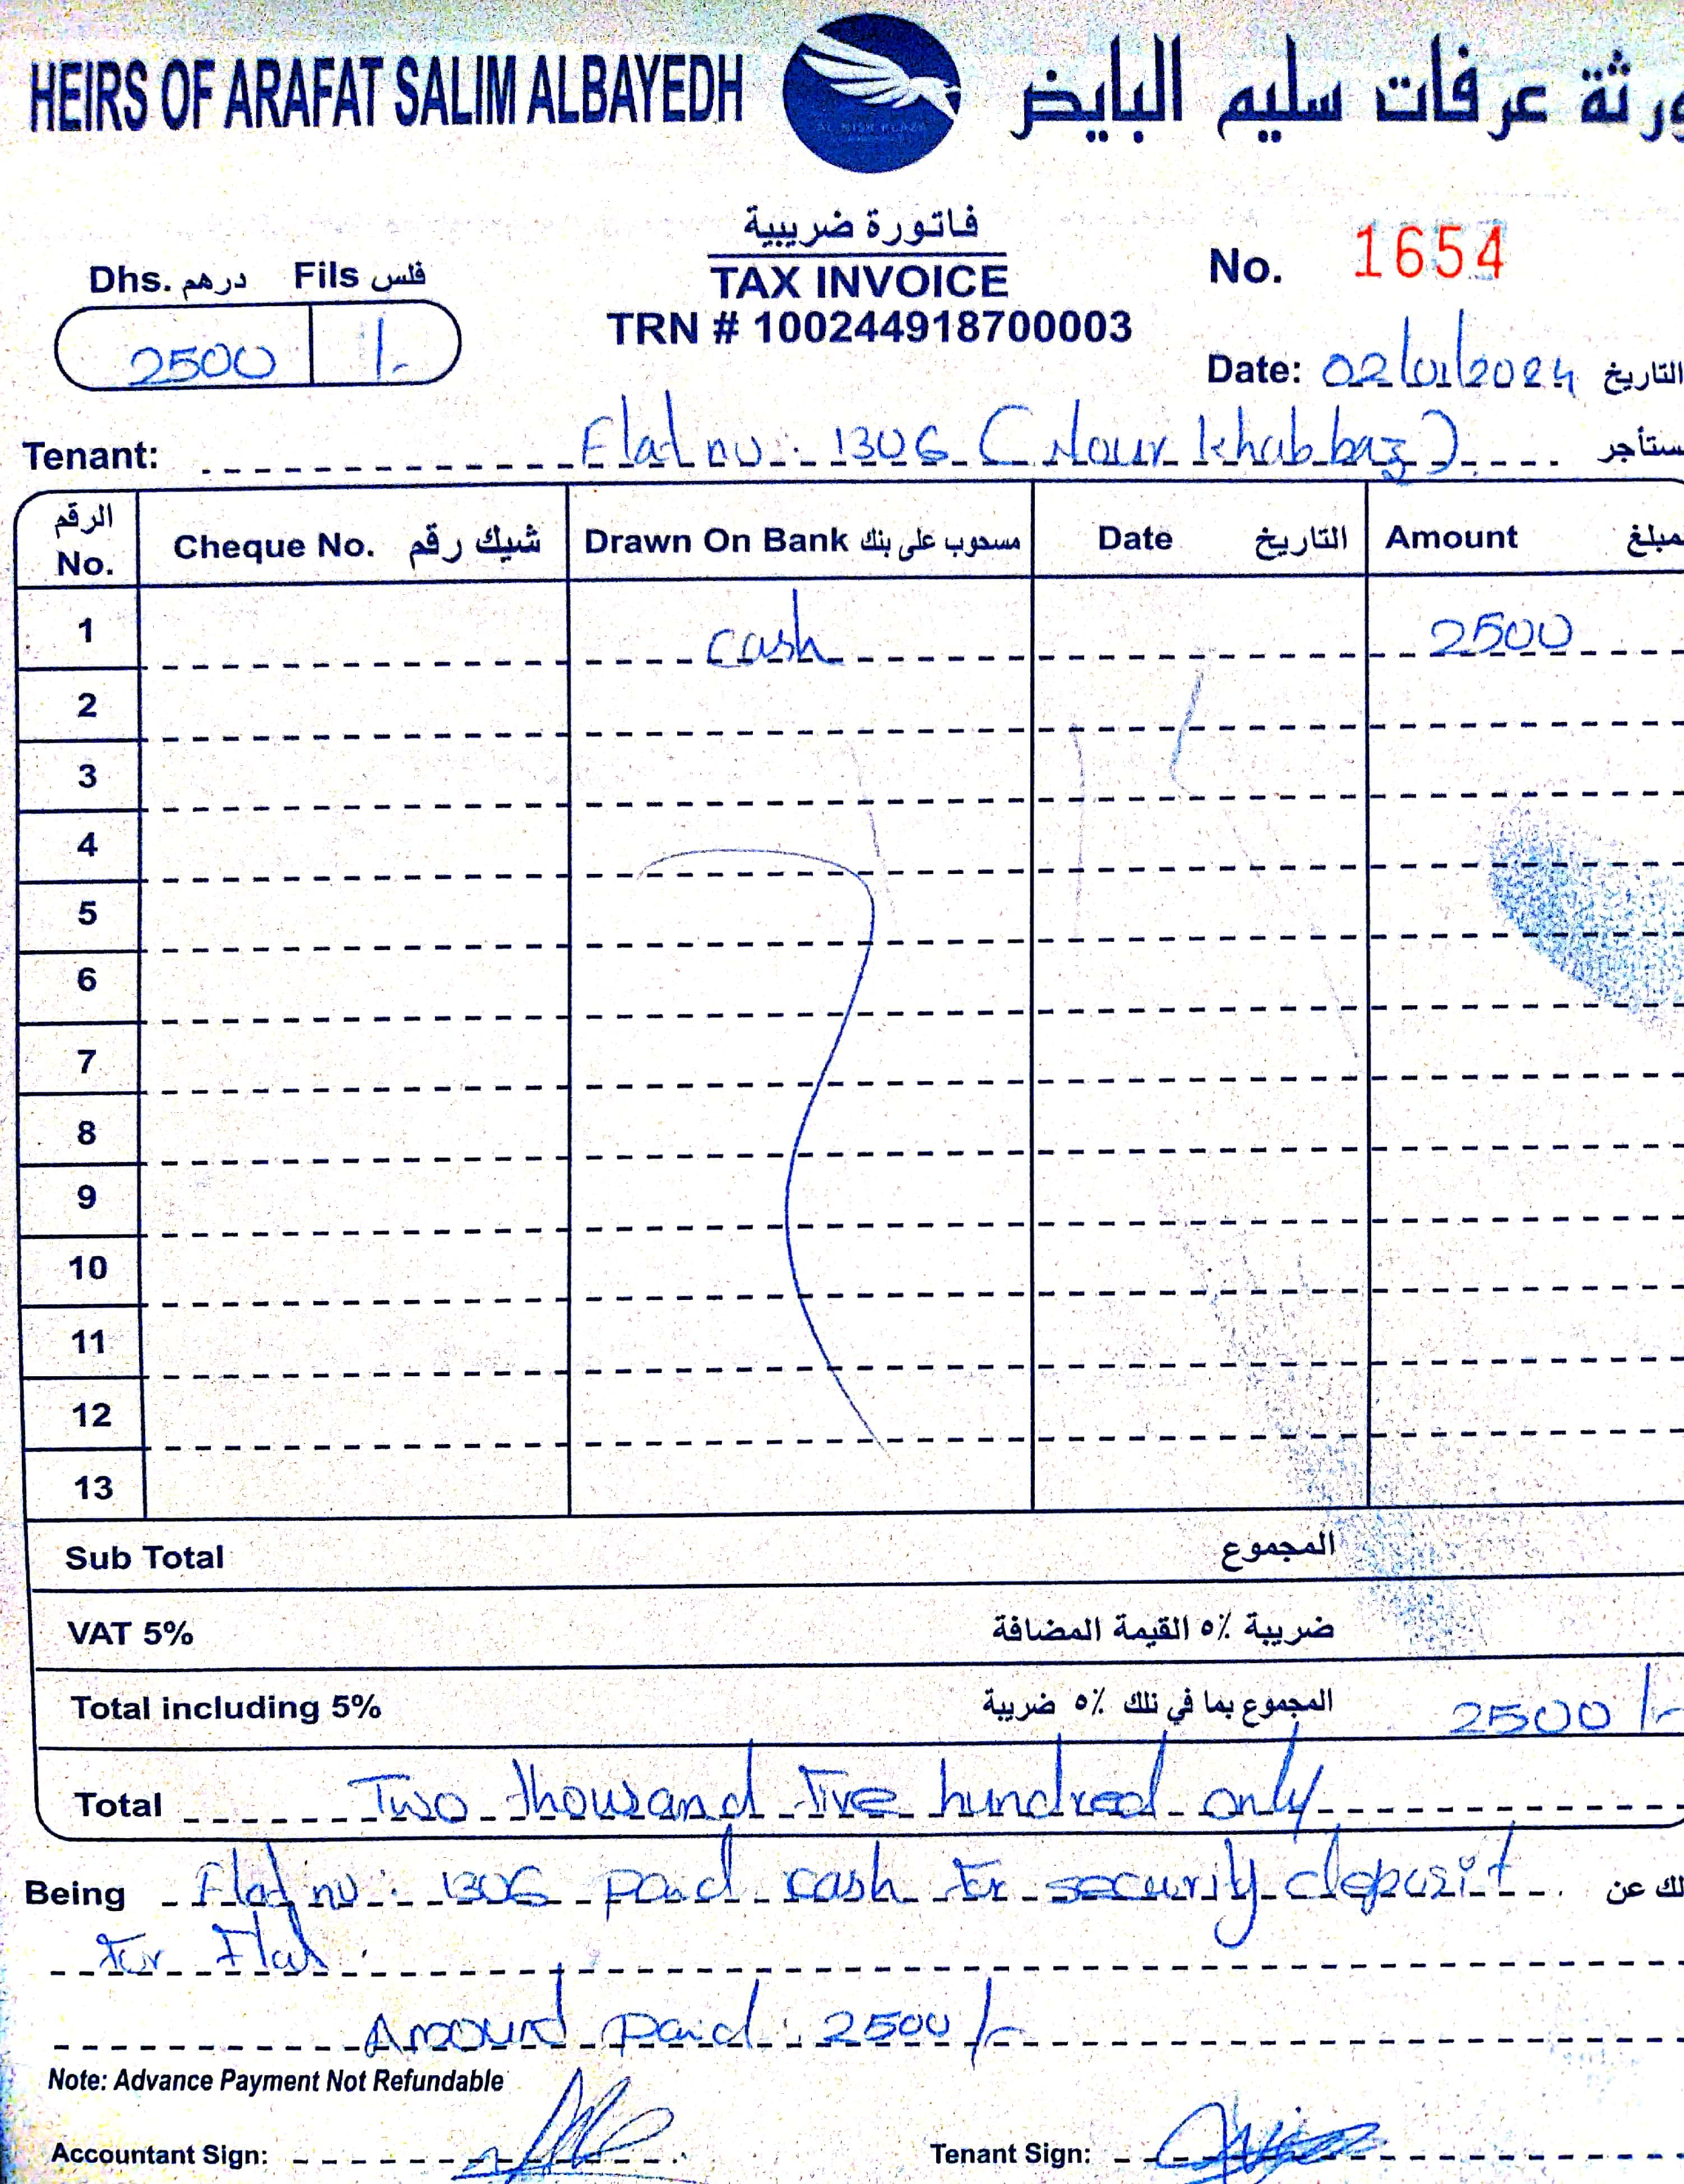 HEIRS OF ARAFAT SALIM ALBAYEDH
ورثة عرفات سليم البايض
AL NISR PLAZA
فاتورة ضريبية
TAX INVOICE
TRN # 100244918700003
Dhs. درهم Fils فلس
2500 /-
No. 1654
Date: 02/01/2024 التاريخ
Tenant: Flat no: 1306 (Nour Khabbaz) ستأجر
الرقم No. Cheque No. شيك رقم Drawn On Bank مسحوب على بنك Date التاريخ Amount مبلغ
1 cash 2500
2
3
4
5
6
7
8
9
10
11
12
13
Sub Total المجموع
VAT 5% ضريبة ٥٪ القيمة المضافة
Total including 5% المجموع بما في ذلك ٥٪ ضريبة 2500/-
Total Two thousand five hundred only
Being Flat no: 1306 paid cash for security deposit لك عن
for Flat.
Amount paid: 2500/-
Note: Advance Payment Not Refundable
Accountant Sign: Tenant Sign: